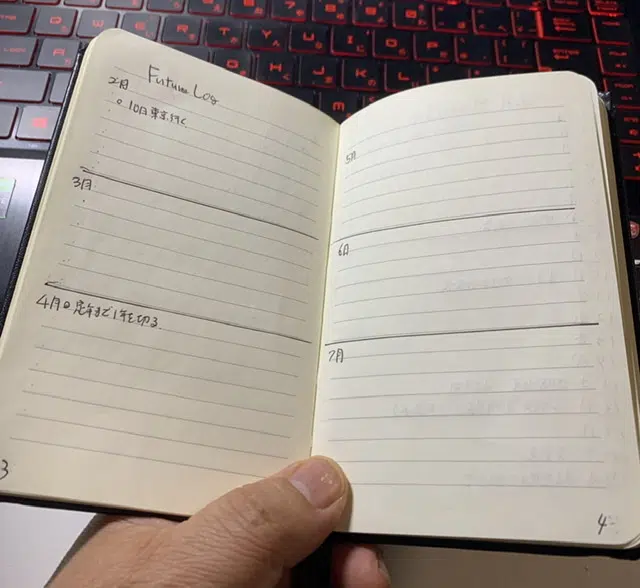 Future Log
2月
○ 10日東京行く
3月
4月○定年まで1年を切る
3
5月
6月
7月
4